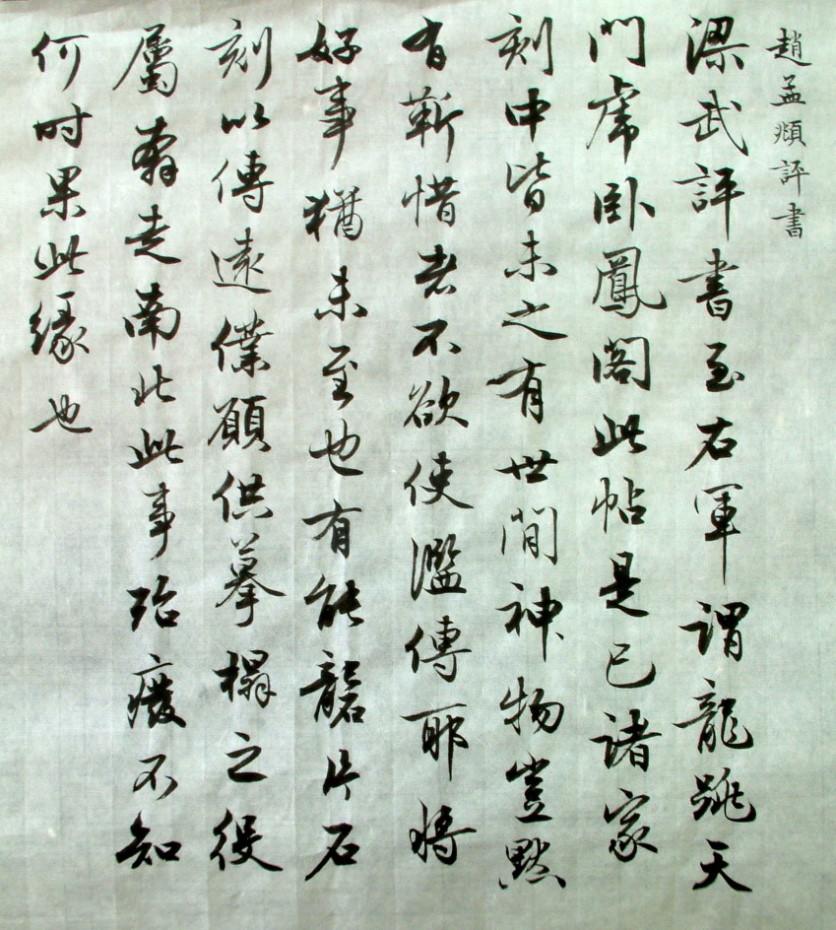 趙孟頫評書
梁武評書至右軍謂龍跳天
門虎卧鳳閣此帖是已諸家
刻中皆未之有世間神物豈默
有靳惜者不欲使濫傳耶將
好事猶未至也有能礱片石
刻以傳遠僕願供摹榻之役
屬奔走南北此事殆廢不知
何时果此緣也